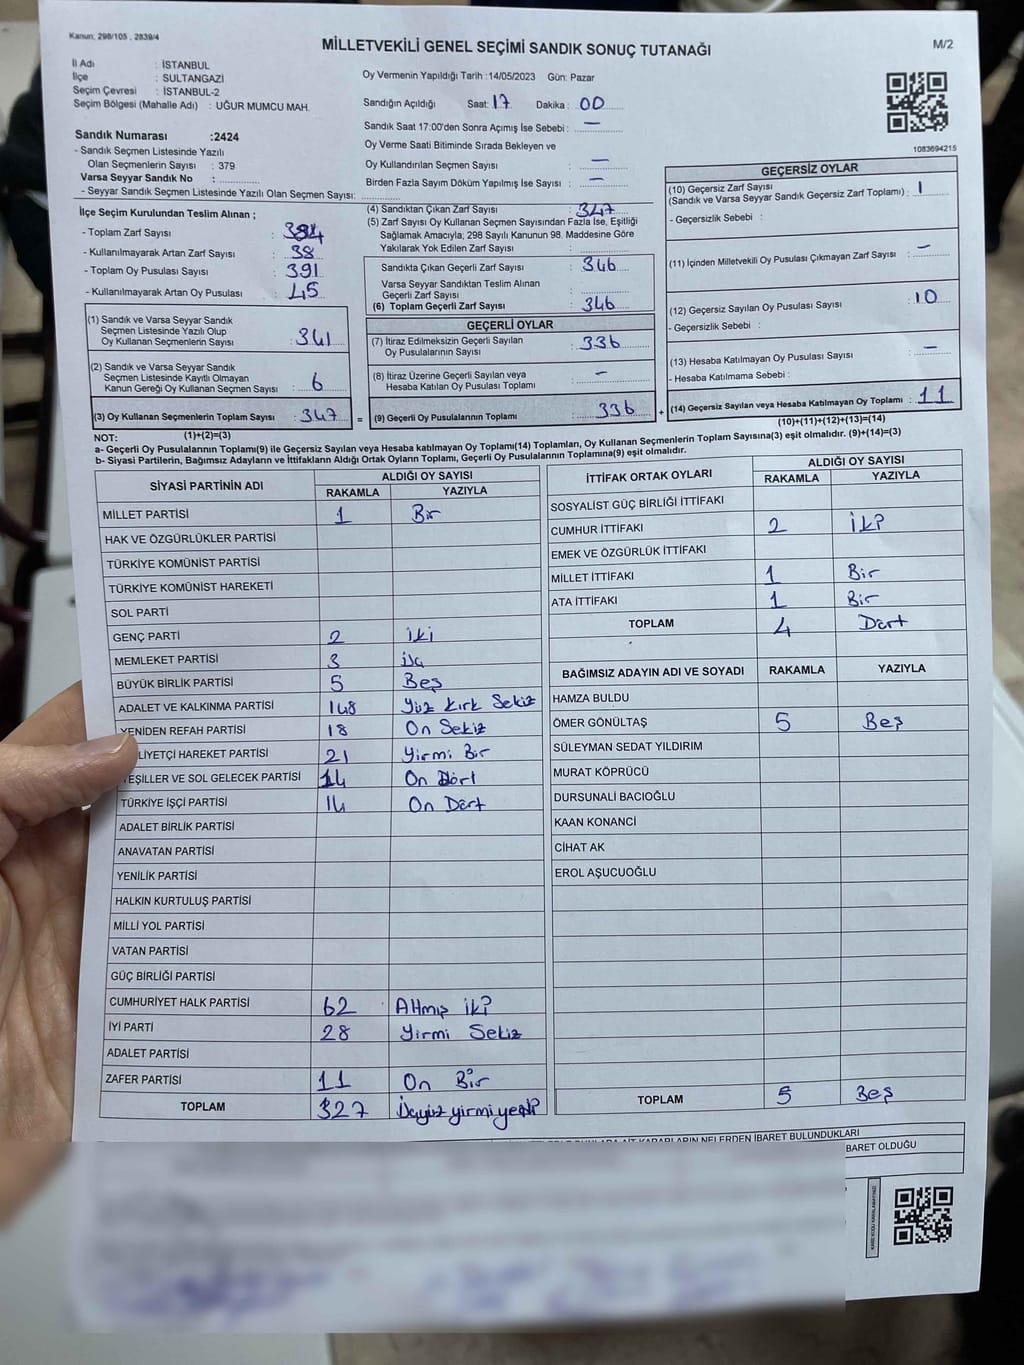 Kanun, 298/105 , 2839/4
MİLLETVEKİLİ GENEL SEÇİMİ SANDIK SONUÇ TUTANAĞI
M/2
İl Adı : İSTANBUL
İlçe : SULTANGAZİ
Seçim Çevresi : İSTANBUL-2
Seçim Bölgesi (Mahalle Adı) : UĞUR MUMCU MAH.
Sandık Numarası :2424
- Sandık Seçmen Listesinde Yazılı
Olan Seçmenlerin Sayısı : 379
Varsa Seyyar Sandık No :
- Seyyar Sandık Seçmen Listesinde Yazılı Olan Seçmen Sayısı:
Oy Vermenin Yapıldığı Tarih :14/05/2023 Gün: Pazar
Sandığın Açıldığı Saat: 17 Dakika : 00
Sandık Saat 17:00'den Sonra Açımış İse Sebebi : —
Oy Verme Saati Bitiminde Sırada Bekleyen ve
Oy Kullandırılan Seçmen Sayısı : —
Birden Fazla Sayım Döküm Yapılmış İse Sayısı : —
1083694215
İlçe Seçim Kurulundan Teslim Alınan ;
- Toplam Zarf Sayısı : 384
- Kullanılmayarak Artan Zarf Sayısı : 38
- Toplam Oy Pusulası Sayısı : 391
- Kullanılmayarak Artan Oy Pusulası : 45
(1) Sandık ve Varsa Seyyar Sandık
Seçmen Listesinde Yazılı Olup
Oy Kullanan Seçmenlerin Sayısı : 341
(2) Sandık ve Varsa Seyyar Sandık
Seçmen Listesinde Kayıtlı Olmayan
Kanun Gereği Oy Kullanan Seçmen Sayısı : 6
(3) Oy Kullanan Seçmenlerin Toplam Sayısı : 347
(1)+(2)=(3)
(4) Sandıktan Çıkan Zarf Sayısı : 347
(5) Zarf Sayısı Oy Kullanan Seçmen Sayısından Fazla İse, Eşitliği
Sağlamak Amacıyla, 298 Sayılı Kanunun 98. Maddesine Göre
Yakılarak Yok Edilen Zarf Sayısı :
Sandıkta Çıkan Geçerli Zarf Sayısı : 346
Varsa Seyyar Sandıktan Teslim Alınan
Geçerli Zarf Sayısı :
(6) Toplam Geçerli Zarf Sayısı : 346
GEÇERLİ OYLAR
(7) İtiraz Edilmeksizin Geçerli Sayılan
Oy Pusulalarının Sayısı : 336
(8) İtiraz Üzerine Geçerli Sayılan veya
Hesaba Katılan Oy Pusulası Toplamı : —
= (9) Geçerli Oy Pusulalarının Toplamı : 336
GEÇERSİZ OYLAR
(10) Geçersiz Zarf Sayısı
(Sandık ve Varsa Seyyar Sandık Geçersiz Zarf Toplamı) : 1
- Geçersizlik Sebebi :
(11) İçinden Milletvekili Oy Pusulası Çıkmayan Zarf Sayısı : —
(12) Geçersiz Sayılan Oy Pusulası Sayısı : 10
- Geçersizlik Sebebi :
(13) Hesaba Katılmayan Oy Pusulası Sayısı : —
- Hesaba Katılmama Sebebi :
+ (14) Geçersiz Sayılan veya Hesaba Katılmayan Oy Toplamı : 11
(10)+(11)+(12)+(13)=(14)
NOT:
a- Geçerli Oy Pusulasının Toplamı(9) ile Geçersiz Sayılan veya Hesaba katılmayan Oy Toplamı(14) Toplamları, Oy Kullanan Seçmenlerin Toplam Sayısına(3) eşit olmalıdır. (9)+(14)=(3)
b- Siyasi Partilerin, Bağımsız Adayların ve İttifakların Aldığı Ortak Oyların Toplamı, Geçerli Oy Pusulalarının Toplamına(9) eşit olmalıdır.
SİYASİ PARTİNİN ADI ALDIĞI OY SAYISI
RAKAMLA YAZIYLA
MİLLET PARTİSİ 1 Bir
HAK VE ÖZGÜRLÜKLER PARTİSİ
TÜRKİYE KOMÜNİST PARTİSİ
TÜRKİYE KOMÜNİST HAREKETİ
SOL PARTİ
GENÇ PARTİ 2 iki
MEMLEKET PARTİSİ 3
BÜYÜK BİRLİK PARTİSİ 5 Beş
ADALET VE KALKINMA PARTİSİ 148 Yüz Kırk Sekiz
YENİDEN REFAH PARTİSİ 18 On Sekiz
LİYETÇİ HAREKET PARTİSİ 21 Yirmi Bir
YEŞİLLER VE SOL GELECEK PARTİSİ 14 On Dört
TÜRKİYE İŞÇİ PARTİSİ 14 On Dört
ADALET BİRLİK PARTİSİ
ANAVATAN PARTİSİ
YENİLİK PARTİSİ
HALKIN KURTULUŞ PARTİSİ
MİLLİ YOL PARTİSİ
VATAN PARTİSİ
GÜÇ BİRLİĞİ PARTİSİ
CUMHURİYET HALK PARTİSİ 62 Altmış iki
İYİ PARTİ 28 Yirmi Sekiz
ADALET PARTİSİ
ZAFER PARTİSİ 11 On Bir
TOPLAM 327 Üçyüz yirmi yedi
İTTİFAK ORTAK OYLARI ALDIĞI OY SAYISI
RAKAMLA YAZIYLA
SOSYALİST GÜÇ BİRLİĞİ İTTİFAKI
CUMHUR İTTİFAKI 2 İki
EMEK VE ÖZGÜRLÜK İTTİFAKI
MİLLET İTTİFAKI 1 Bir
ATA İTTİFAKI 1 Bir
TOPLAM 4 Dört
BAĞIMSIZ ADAYIN ADI VE SOYADI RAKAMLA YAZIYLA
HAMZA BULDU
ÖMER GÖNÜLTAŞ 5 Beş
SÜLEYMAN SEDAT YILDIRIM
MURAT KÖPRÜCÜ
DURSUNALİ BACIOĞLU
KAAN KONANCİ
CİHAT AK
EROL AŞUCUOĞLU
TOPLAM 5 Beş
KARARLARIN NELERDEN İBARET BULUNDUKLARI
BARET OLDUĞU